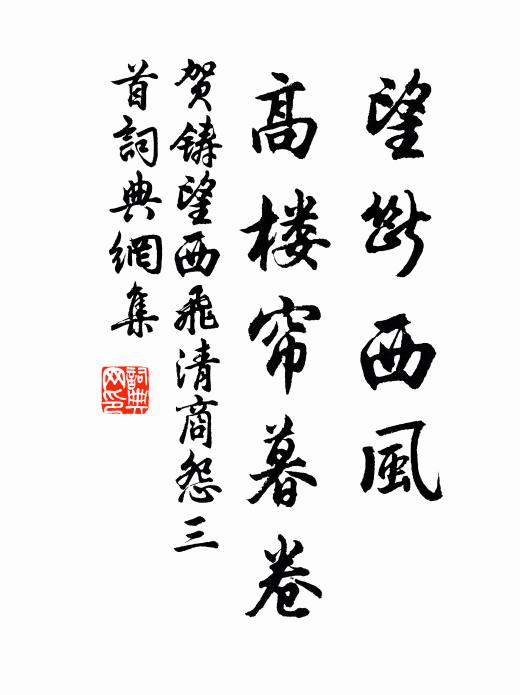 望断西風
高楼帘暮卷
贺鑄望西飛清商怨三
首詞典網集
詞典网印